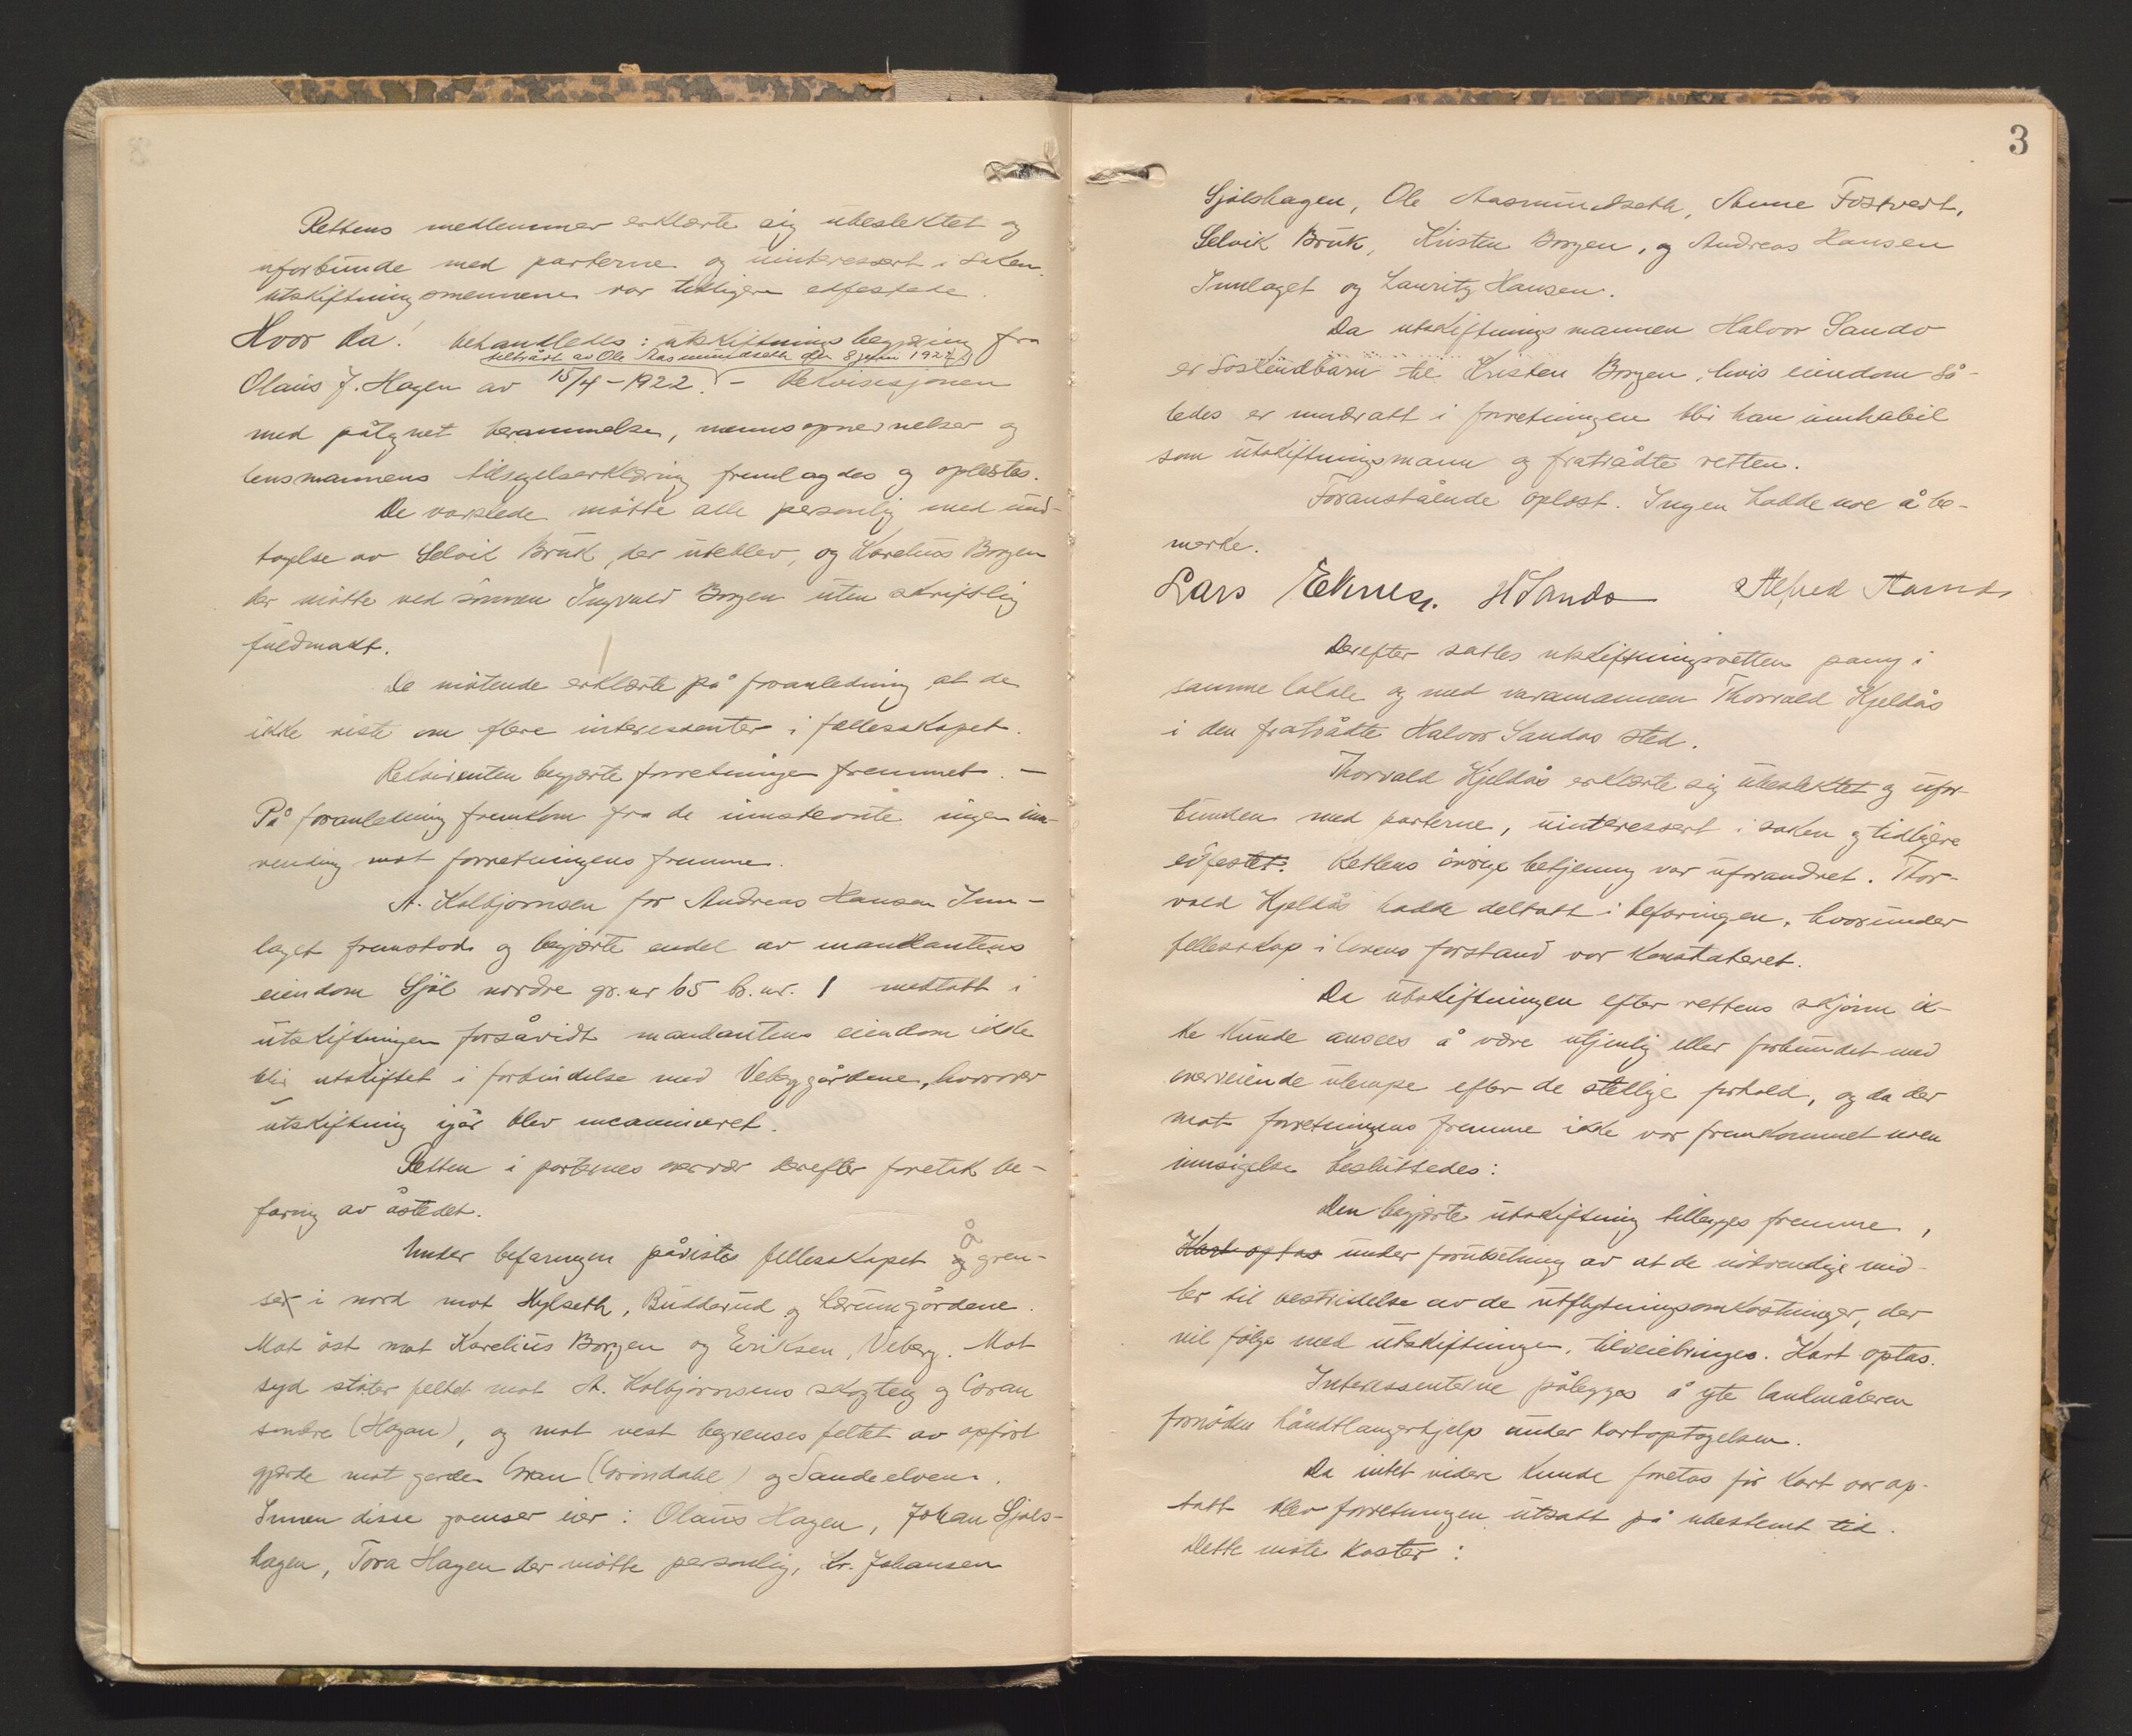 Rettens medlemmer erklærte sig ubeslektet og
uforbunde med parterne og uinteressert i saken.
utskiftningsmennene var tidligere edfestede.
Hvor da! behandledes: utskiftnings begjæring fra
tiltrådt av Ole Aasmundseth den 8 juni 1927
Olaus J. Hagen av 15/4-1922. – Rekvisisjonen
med påtegnet berammelse, mennsopnevnelser og
lensmannens tilsigelseerklæring fremlagdes og oplestes.
De varslede møtte alle personlig med und-
tagelse av Selvik Bruk, der uteblev, og Karelius Borgen
der møtte ved sønnen Ingvald Borgen uten skriftlig
fuldmakt.
De møtende erklærte på foranledning at de
ikke viste om flere interessenter i fellesskapet.
Rekvirenten begjærte forretningen fremmet. –
På foranledning fremkom fra de innstevnte ingen inn-
vending mot forretningens fremme.
A. Kolbjørnsen for Andreas Hansen Inn-
laget fremstod og begjærte endel av mandantens
eiendom Sjøl nordre gr.nr 65 br.nr. 1 medtatt i
utskiftningen forsåvidt mandantens eiendom ikke
blir utskiftet i forbindelse med Veberggårdene, hvorover
utskiftning igår blev incamineret.
Retten i parternes overvær derefter foretok be-
faring av åstedet.
Under befaringen påvistes fellesskapet og gren-
ser i nord mot Hylseth, Budderud og Lærumgårdene.
Mot øst mot Karelius Borgen og Eriksen, Veberg. Mot
syd støter feltet mot A. Kolbjørnsens skogteig og Gran
søndre (Hagan), og mot vest begrenses feltet av opført
gjerde mot garden Gran (Grøndahl) og Sandeelven.
Innen disse grenser eier: Olaus Hagen, Johan Sjøls-
hagen, Tora Hagen der møtte personlig, Kr. Johansen
3
Sjølshagen, Ole Aasmundseth, Anne Fostvedt,
Selvik Bruk, Kristen Borgen, og Andreas Hansen
Innlaget og Lauritz Hansen.
Da utskiftningsmannen Halvor Sando
er søskendbarn til Kristen Borgen, hvis eiendom så-
ledes er inndratt i forretningen blir han innhabil
som utskiftningsmann og fratrådte retten.
Foranstående oplest. Ingen hadde noe å be-
merke.
Lars H Sando Alfred
Derefter sattes utskiftningsretten påny i
samme lokale og med varamannen Thorvald Hjeldås
i den fratrådte Halvor Sandos sted.
Thorvald Hjeldås erklærte sig ubeslektet og ufor-
bunden med parterne, uinteressert i saken og tidligere
edfestet. Rettens øvrige betjening var uforandret. Thor-
vald Hjeldås hadde deltatt i befaringen, hvorunder
fellesskap i lovens forstand var konstateret.
Da utskiftningen efter rettens skjønn ik-
ke kunde ansees å være utjenlig eller forbundet med
overveiende ulempe efter de stedlige forhold, og da der
mot forretningens fremme ikke var fremkommet noen
innsigelse besluttedes:
Den begjærte utskiftning tillegges fremme,
Kart optas under forutsetning av at de nødvendige mid-
ler til bestridelse av de utflytningsomkostninger, der
vil følge med utskiftningen, tilveiebringes. Kart optas.
Interessenterne pålegges å yte landmåleren
fornøden håndtlangerhjelp under kartoptagelsen.
Da intet videre kunde foretas før kart var op-
tatt blev forretningen utsatt på ubestemt tid.
Dette møte koster: